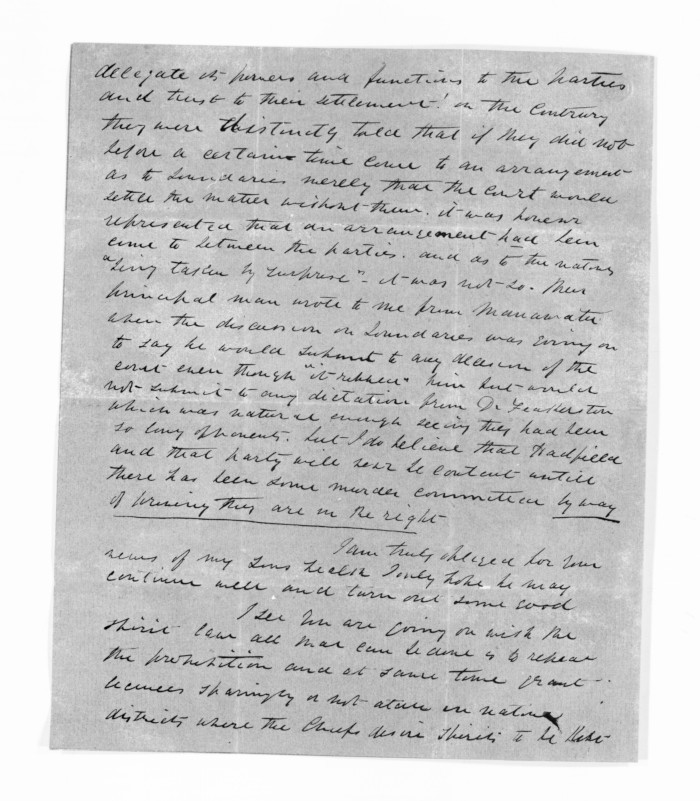 delegate its powers and functions to the parties
and trust to their settlement! on the contrary
they were distinctly told that if they did not
before a certain time come to an arrangement
as to boundaries merely that the Court would
settle the matter without them. it was however
represented that an arrangement had been
come to between the parties. and as to the natives
"being taken by surprise" - it was not so. their
principal man wrote to me from Manawatu
when the discussion on boundaries was going on
to say he would submit to any decision of the
court even though "it robbed" him but would
not submit to any dictation from Dr Featherston
which was natural enough seeing they had been
so long opponents. but I do believe that Hadfield
and that party will never be content untill
there has been some murder committed by way
of proving they are in the right
I am truly obliged for your
news of my sons health I only hope he may
continue well and turn out some good
I see you are going on with the
spirit law all that can be done is to repeal
the prohibition and at same time grant
licences sparingly or not atall in native
districts where the Chiefs desire spirits to be